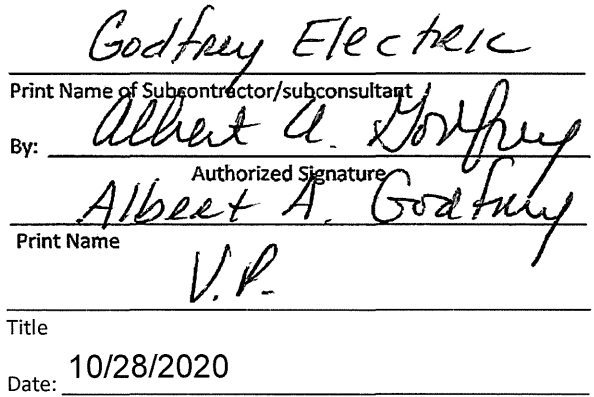 Godfrey Electric
Print Name of Subcontractor/subconsultant
By: Albert A. Godfrey
Authorized Signature
Albert A. Godfrey
Print Name
V.P.
Title
Date: 10/28/2020